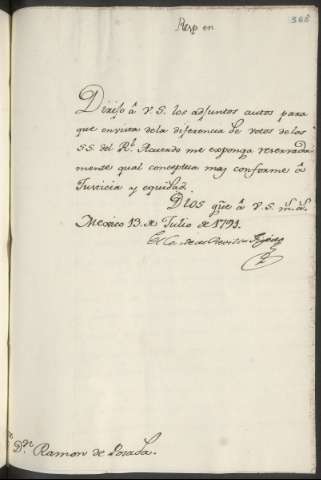 368
Resp en
Dirijo â V. S. los adjuntos autos para
que en vista de la diferencia de votos de los
S.S. del Rl. Acuerdo me exponga reservada
mente qual conceptua mas conforme â
Justicia y equidad.
Dios gũe â V. S. m.s a.s
Mexico 13 de Julio de 1791.
El Conde de Revilla Gigedo
Dn. Ramon de Posada.